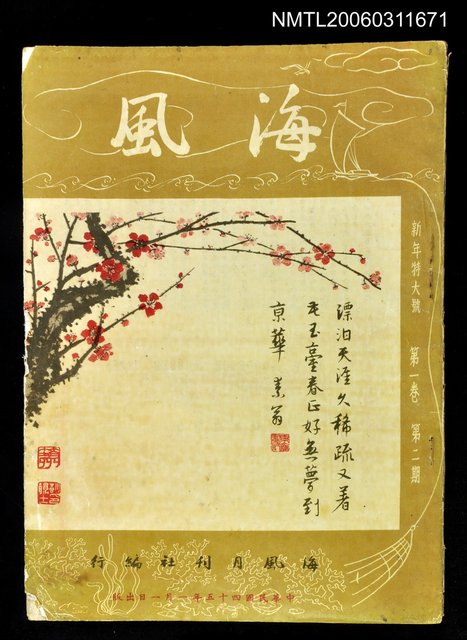 NMTL20060311671
海風
新年特大號 第一卷 第二期
漂泊天涯久稀疏又著
花玉臺春正好無夢到
京華 素翁
海風月刊社編行
中華民國四十五年一月一日出版